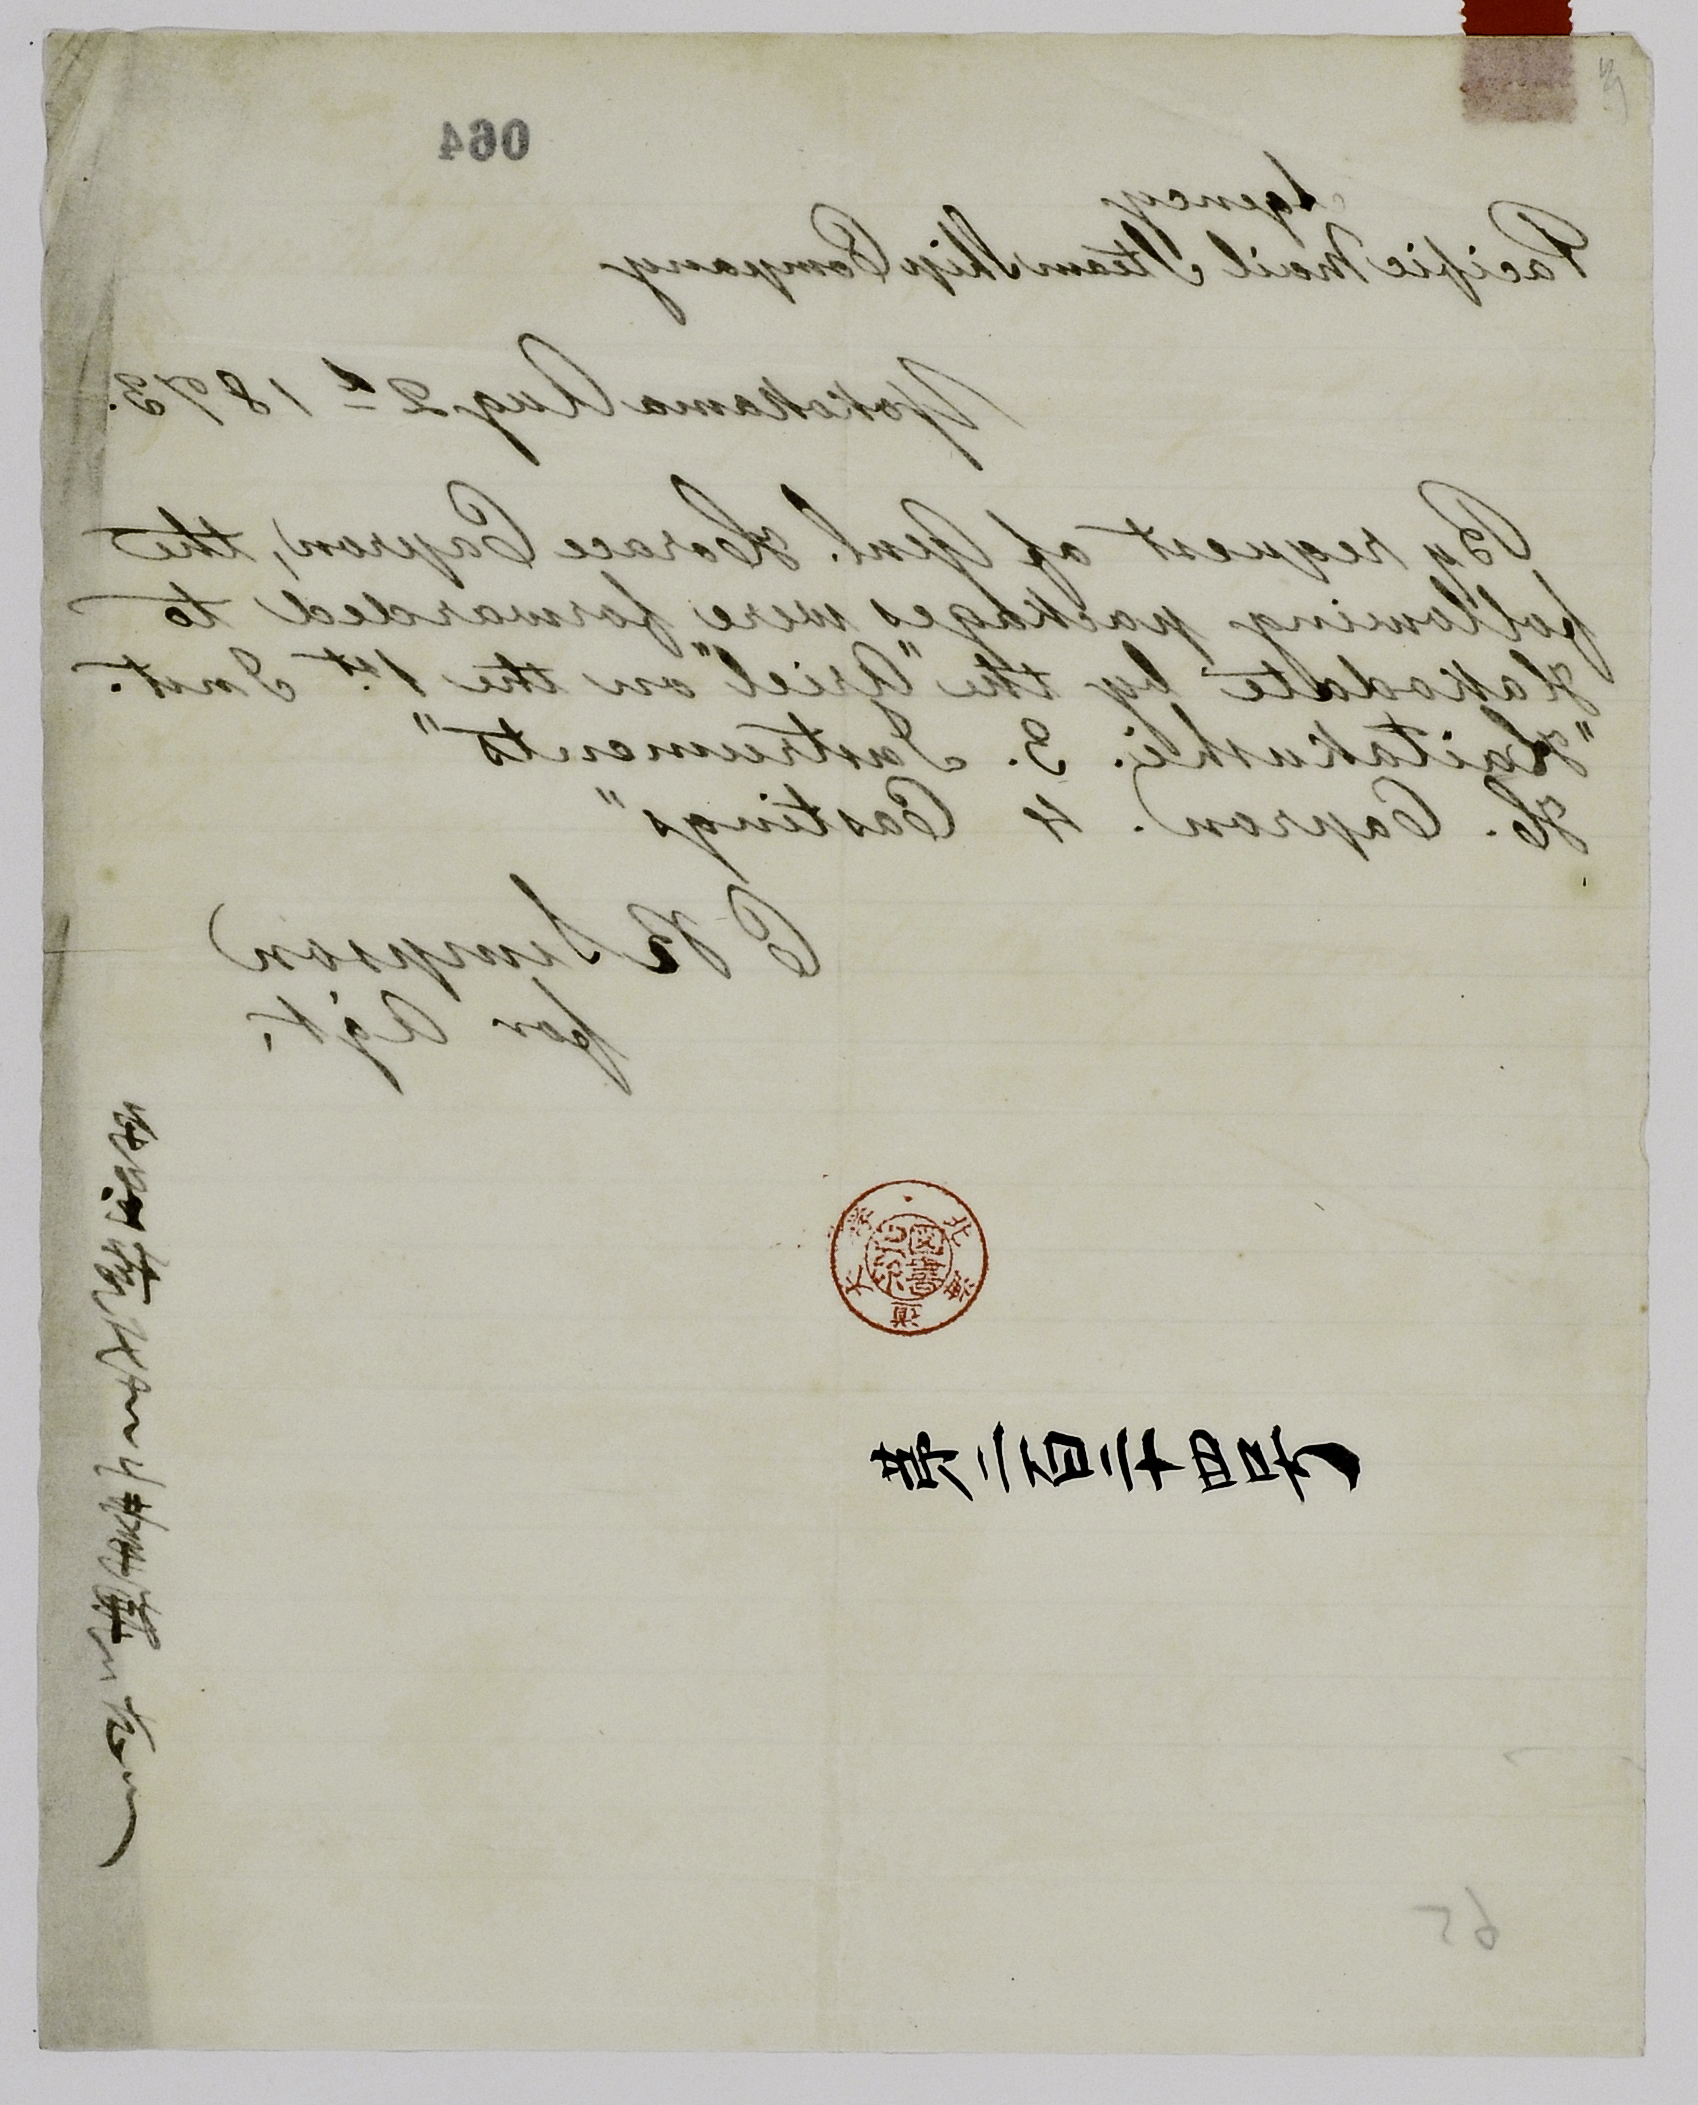 064
Agency
Pacific Mail Steam Ship Company
Yokohama Aug 2d 1873.
By request of Genl. Horace Capron, the
following packages were forwarded to
Hakodate by the "Ariel" on the 1st. Inst.
"Kaitakushi. 3. Instruments"
H. Capron. 4 Castings"
C R Simpson
for Agt.
北海道大学
図書
第二百二十四号
65